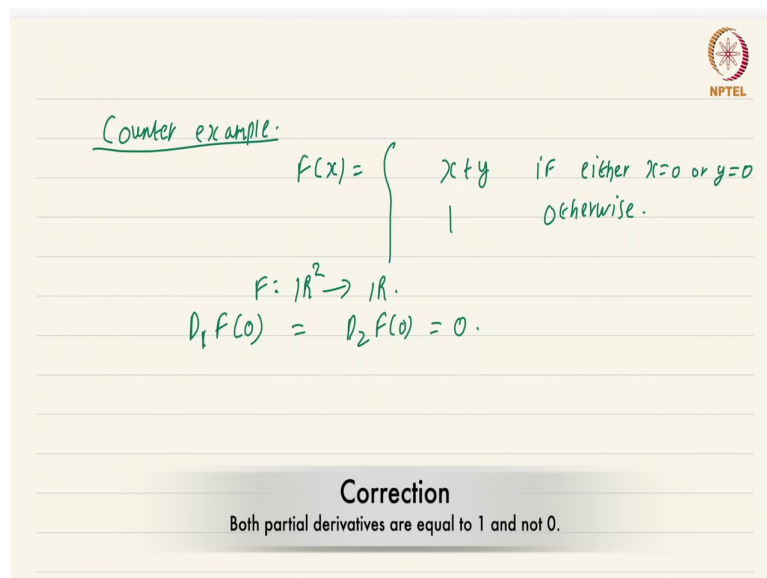 NPTEL
Counter example.
F(x) = { x+y if either x=0 or y=0
1 otherwise.
F: ℝ² → ℝ.
D₁F(0) = D₂F(0) = 0.
Correction
Both partial derivatives are equal to 1 and not 0.